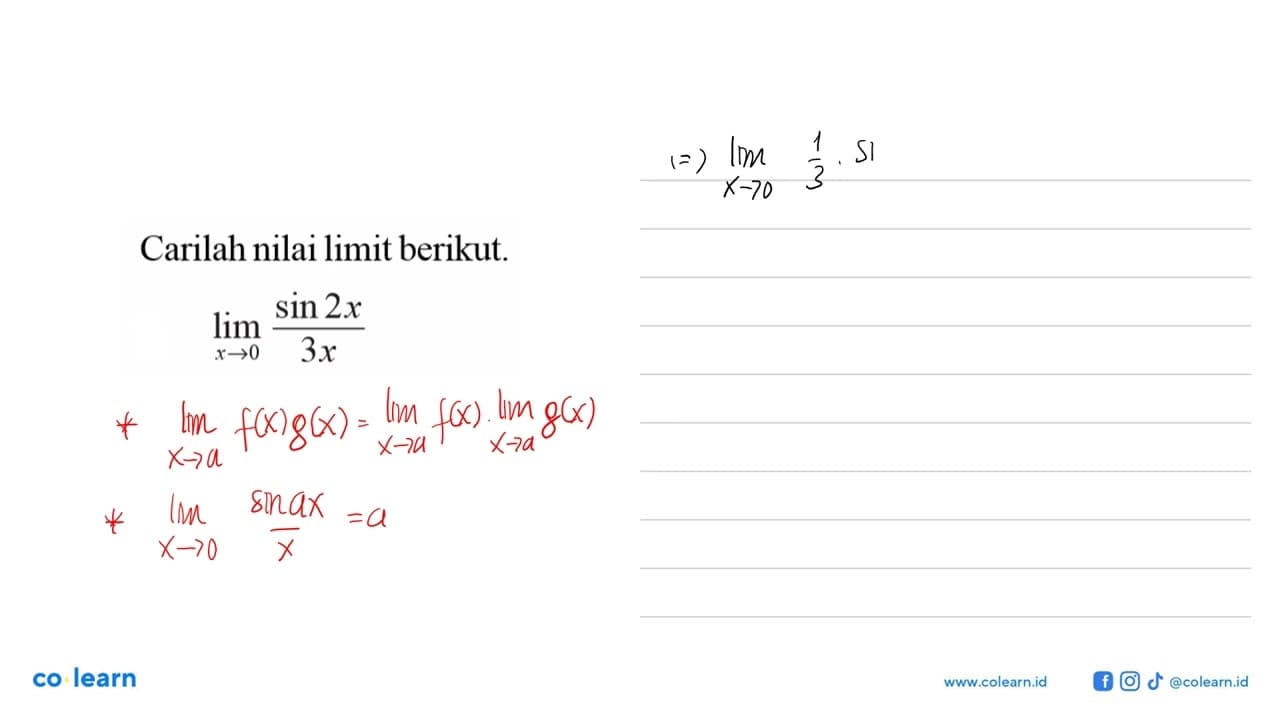 Carilah nilai limit berikut.
lim x→0 sin 2x / 3x
* lim x→a f(x)g(x) = lim x→a f(x) . lim x→a g(x)
* lim x→0 sin ax / x = a
(=) lim x→0 1/3 . si
co learn
www.colearn.id @colearn.id